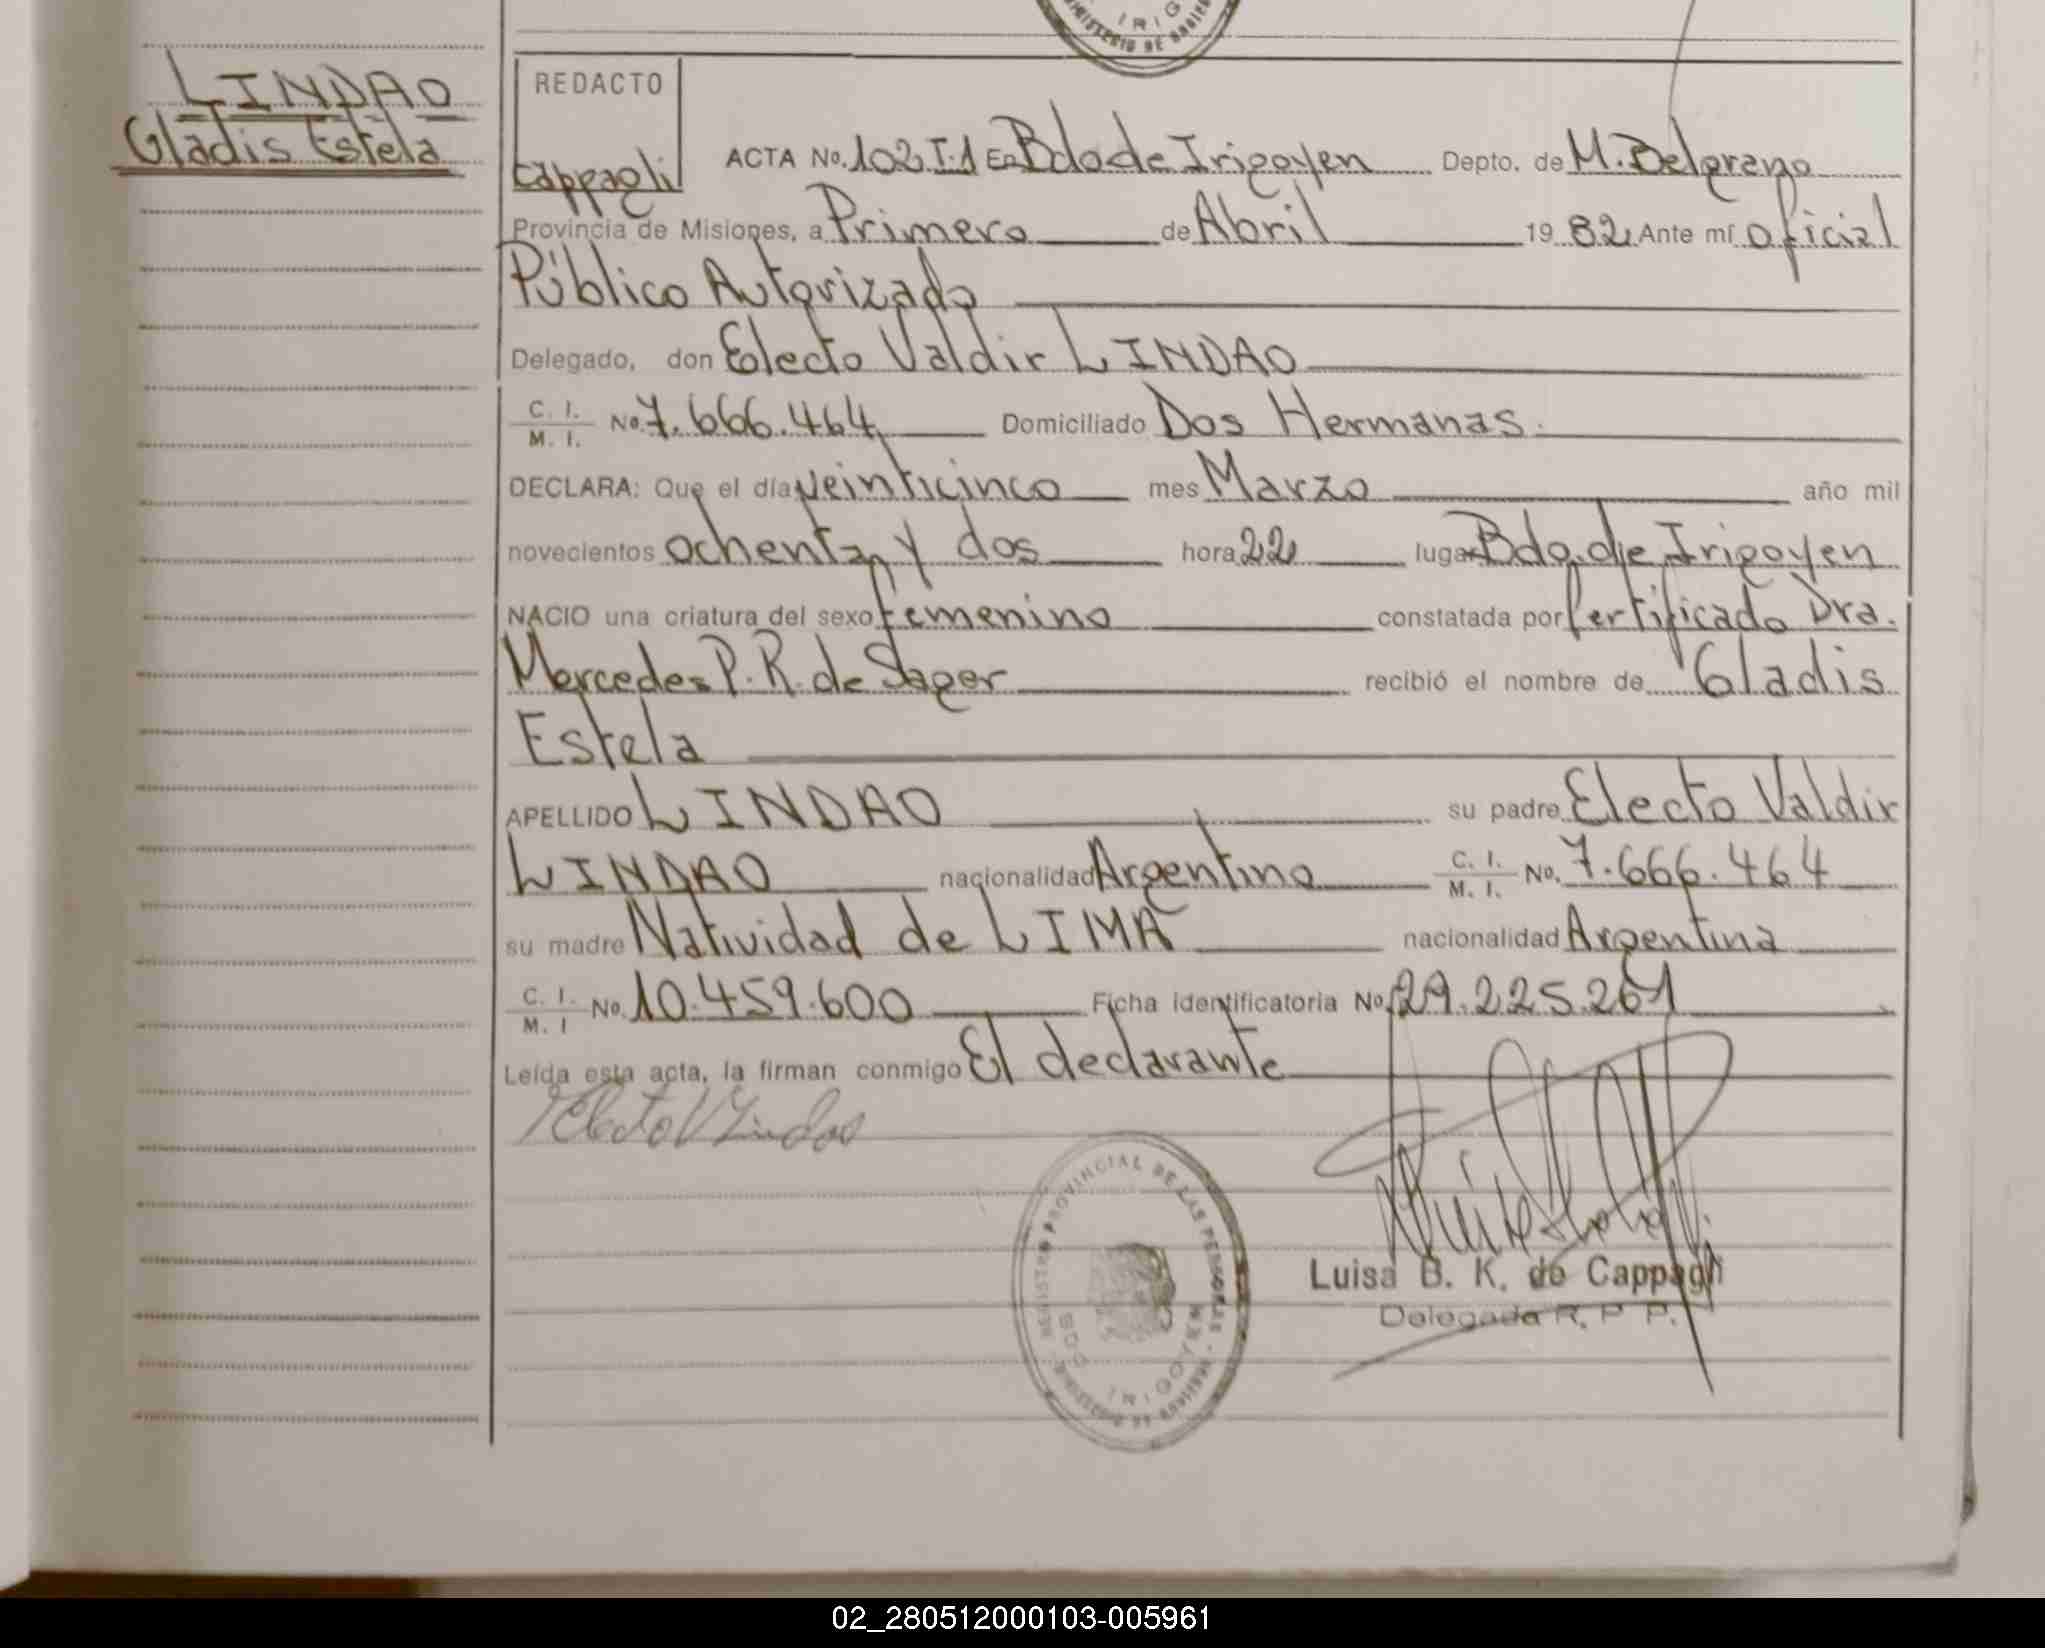 IRIG
MINISTERIO DE GOBIERNO
LINDAO
Gladis Estela
REDACTO
Cappagli
ACTA No. 102 T.1 En Bdo de Irigoyen Depto. de M. Belgrano
Provincia de Misiones, a Primero de Abril 19 82 Ante mí oficial
Público Autorizado
Delegado, don Electo Valdir LINDAO
C. I. / M. I. No 7.666.464 Domiciliado Dos Hermanas.
DECLARA: Que el día veinticinco mes Marzo año mil
novecientos ochenta y dos hora 22 lugar Bdo. de Irigoyen
NACIO una criatura del sexo femenino constatada por Certificado Dra.
Mercedes P. R. de Sager recibió el nombre de Gladis
Estela
APELLIDO LINDAO su padre Electo Valdir
LINDAO nacionalidad Argentino C. I. / M. I. No. 7.666.464
su madre Natividad de LIMA nacionalidad Argentina
C. I. / M. I No. 10.459.600 Ficha identificatoria No. 29.225.261
Leída esta acta, la firman conmigo El declarante
Electo V Lindao
REGISTRO PROVINCIAL DE LAS PERSONAS - MINISTERIO DE GOBIERNO
BDO IRIGOYEN
Luisa B. K. de Cappagli
Delegada R. P. P.
02_280512000103-005961